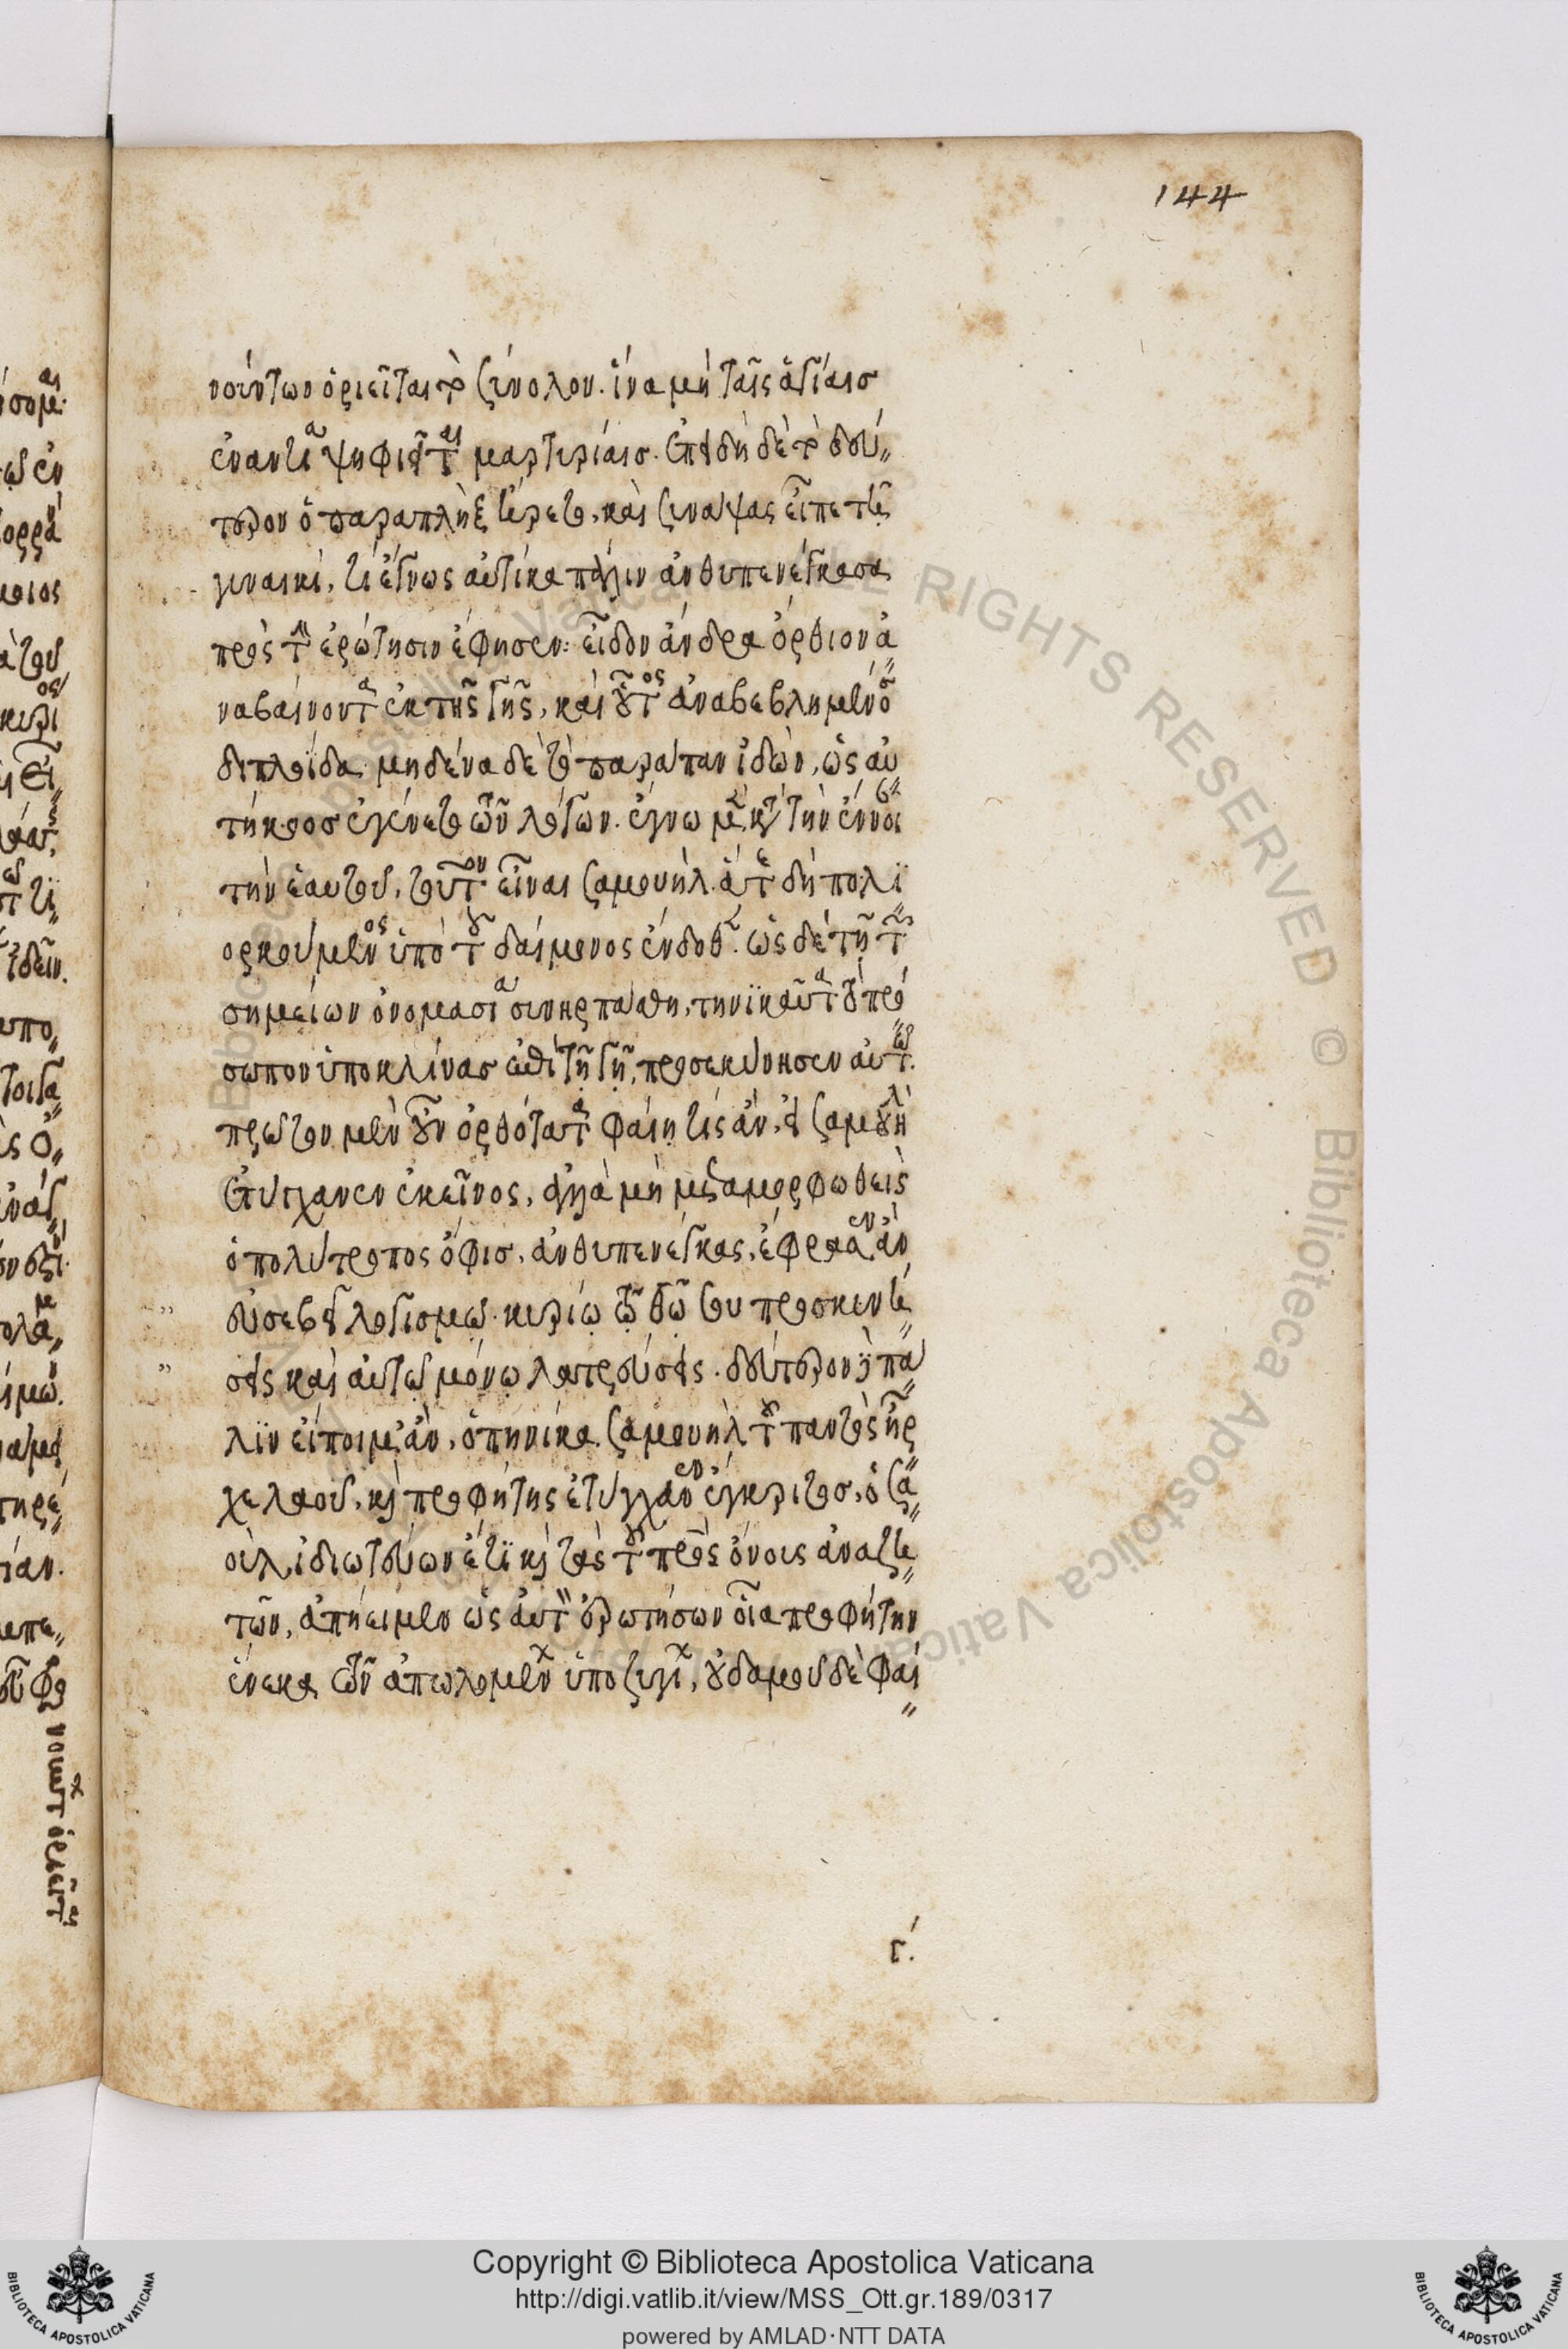 144
νούντων ὁριεῖται τὸ σύνολον. ἵνα μὴ ταῖς ἁγίαις
ἐναντία ψηφιεῖται μαρτυρίαις. ἐπειδὴ δὲ τὸ δεύ
τερον ὁ παραπλὴξ ἤρετο, καὶ συνάψας εἶπε τῇ
γυναικί, τί ἔγνως αὐτίκα πάλιν ἀνθυπενέγκασα
πρὸς τὴν ἐρώτησιν ἔφησεν: εἶδον ἄνδρα ὄρθιον ἀ
ναβαίνοντα ἐκ τῆς γῆς, καὶ οὗτος ἀναβεβλημένος
διπλοΐδα. μηδένα δὲ τὸ παράπαν ἰδών, ὡς αὐ
τήκοος ἐγένετο τῶν λόγων. ἔγνω μὲν κατὰ τὴν ἔννοιαν
τὴν ἑαυτοῦ, τοῦτον εἶναι σαμουήλ. ἅτε δὴ πολι
ορκούμενος ὑπὸ τοῦ δαίμονος ἔνδοθεν. ὡς δὲ τῇ τῶν
σημείων ὀνομασίᾳ συνηρπάσθη, τηνικαῦτα τὸ πρό
σωπον ὑποκλίνας ἐπὶ τῇ γῇ, προσεκύνησεν αὐτῷ.
πρῶτον μὲν οὖν ὀρθότατα φαίη τις ἄν, εἰ σαμουὴλ
ἐτύγχανεν ἐκεῖνος, ἀλλὰ μὴ μεταμορφωθεὶς
ὁ πολύτροπος ὄφις, ἀνθυπενέγκας, ἔφρασεν ἂν
εὐσεβεῖ λογισμῷ. κυρίῳ τῷ θεῷ σου προσκυνή
σεις καὶ αὐτῷ μόνῳ λατρεύσεις. δεύτερον δὲ πά
λιν εἴποιμ' ἄν, ὁπηνίκα σαμουὴλ τοῦ παντὸς ἦρ
χε λαοῦ, καὶ προφήτης ἐτύγχανεν ἔγκριτος, ὁ σα
οὺλ ἰδιωτεύων ἔτι καὶ τὰς τοῦ πατρὸς ὄνους ἀναζη
τῶν, ἀπῄει μὲν ὡς αὐτὸν ἐρωτήσων οἷα προφήτην
ἕνεκα τῶν ἀπωλομένων ὑποζυγίων, οὐδαμοῦ δὲ φαί
Γ.
Copyright © Biblioteca Apostolica Vaticana
http://digi.vatlib.it/view/MSS_Ott.gr.189/0317
powered by AMLAD·NTT DATA